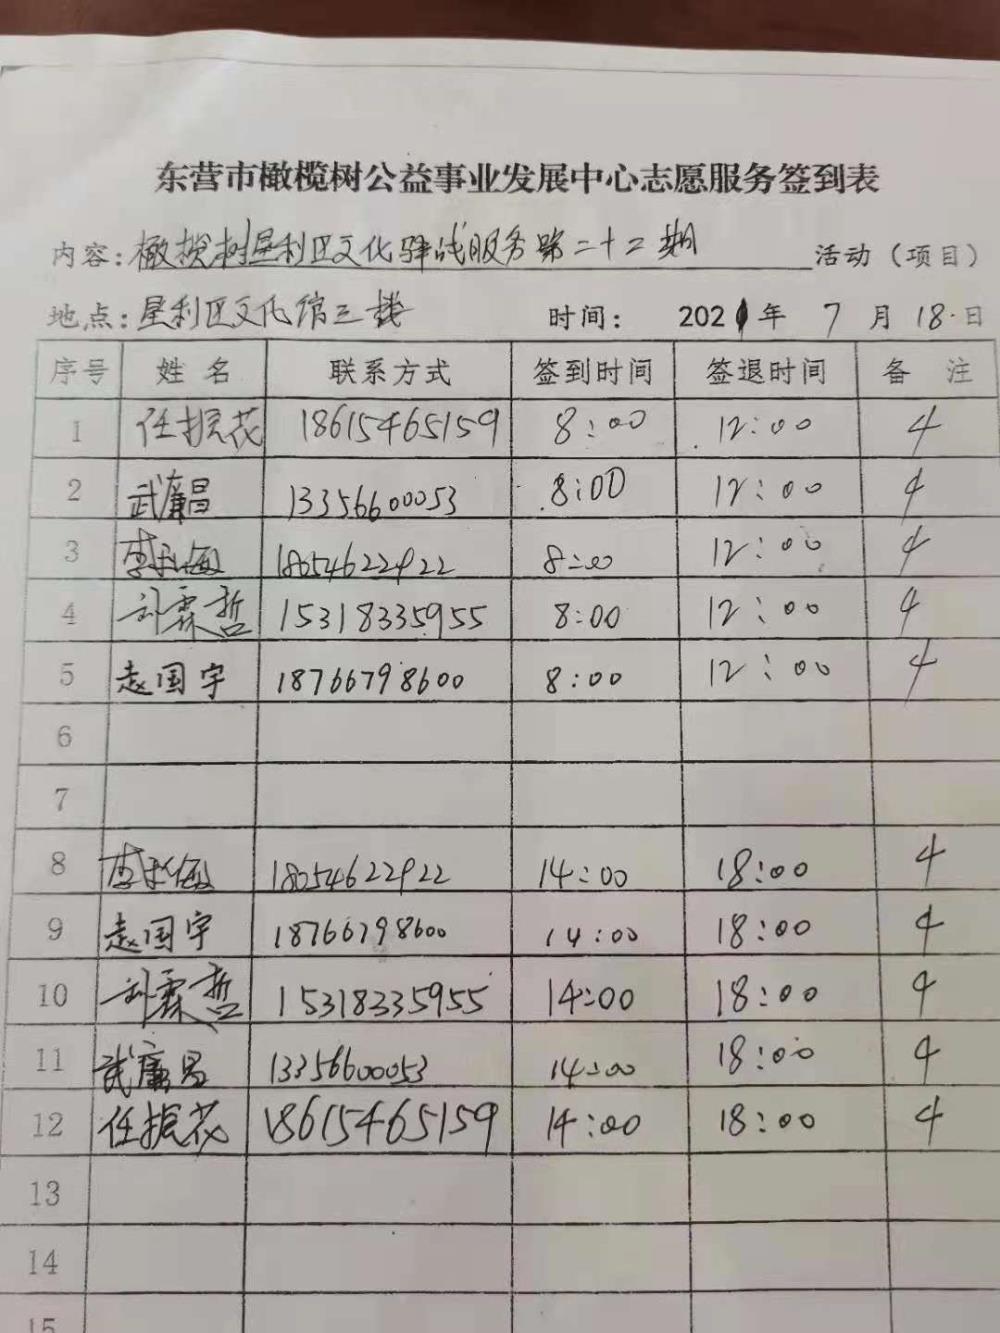 东营市橄榄树公益事业发展中心志愿服务签到表
内容：橄榄树垦利区文化驿站服务第二十二期 活动（项目）
地点：垦利区文化馆三楼 时间： 2021年 7 月 18 日
序号 姓名 联系方式 签到时间 签退时间 备 注
1 任振花 18615465159 8:00 12:00 4
2 武廉昌 13356600053 8:00 12:00 4
3 李 敏 18054622922 8:00 12:00 4
4 刘霖哲 15318335955 8:00 12:00 4
5 赵国宇 18766798600 8:00 12:00 4
6
7
8 李 敏 18054622922 14:00 18:00 4
9 赵国宇 18766798600 14:00 18:00 4
10 刘霖哲 15318335955 14:00 18:00 4
11 武廉昌 13356600053 14:00 18:00 4
12 任振花 18615465159 14:00 18:00 4
13
14
15